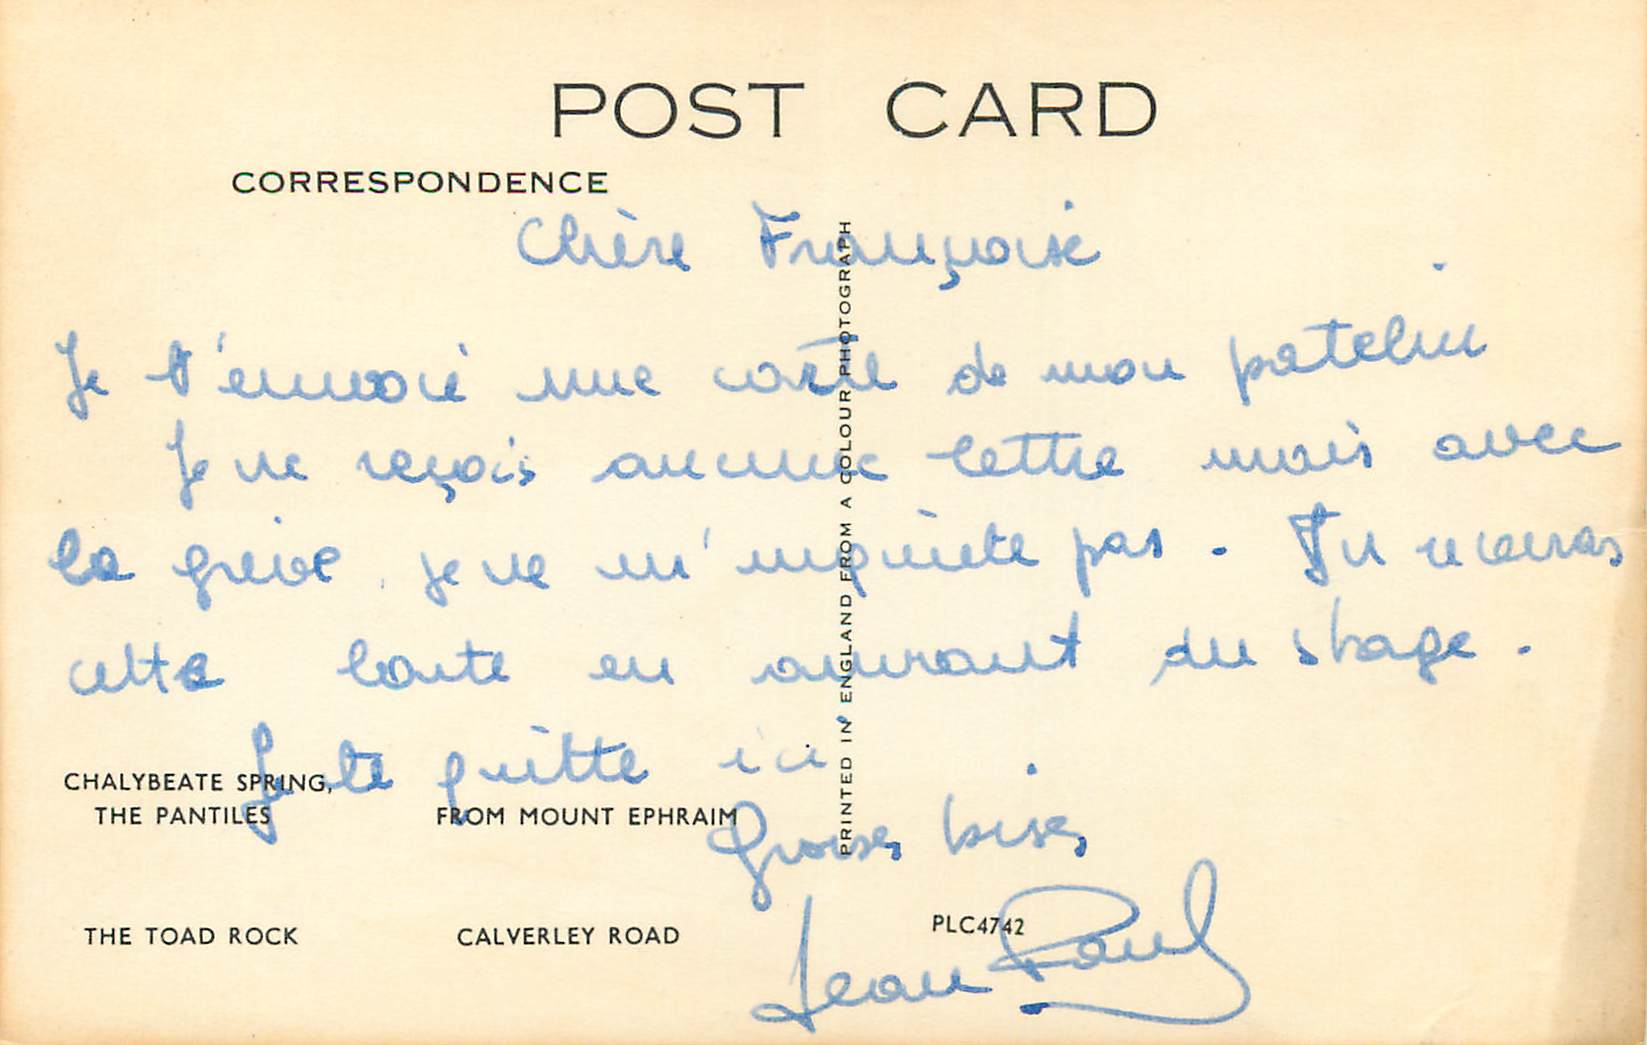 POST CARD
CORRESPONDENCE
Chère Françoise
Je t'envoie une carte de mon patelin
Je ne reçois aucune lettre mais avec
la grève je ne m'inquiète pas. Tu recevras
cette carte en courant du stage.
Je te quitte ici
Grosses bises
Jean Paul
CHALYBEATE SPRING,
THE PANTILES
FROM MOUNT EPHRAIM
THE TOAD ROCK
CALVERLEY ROAD
PLC4742
PRINTED IN ENGLAND FROM A COLOUR PHOTOGRAPH